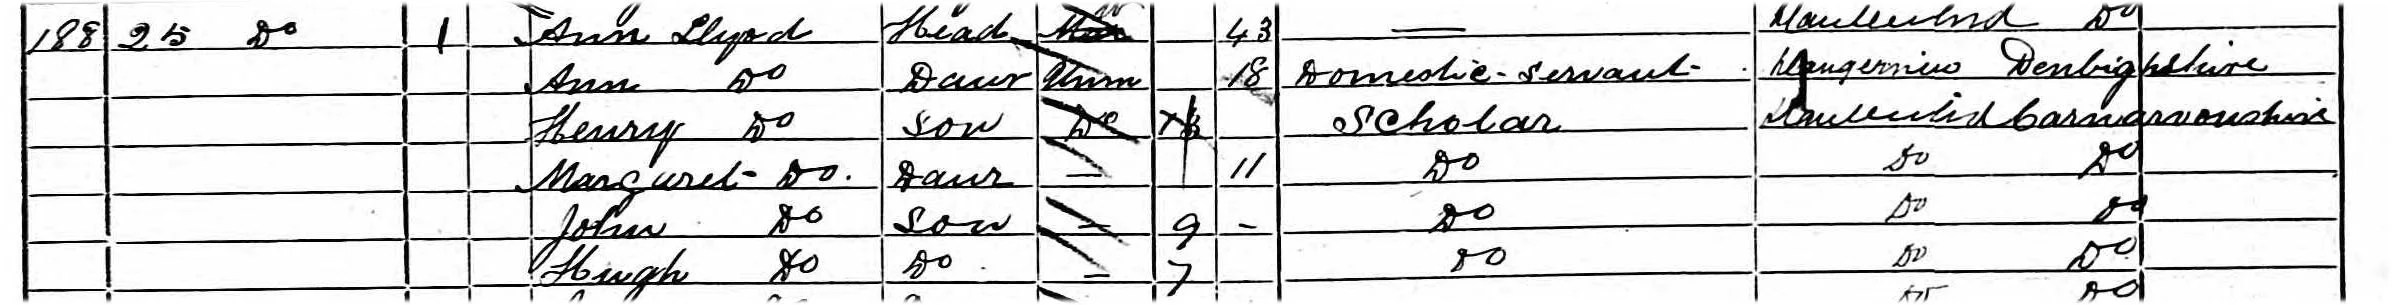 188 25 Do 1 Ann Lloyd Head 43 — Do
Ann Do Daur Unm 18 Domestic-Servant Llangerniew Denbighshire
Henry Do Son Do Scholar Carnarvonshire
Margaret Do. Daur — 11 Do Do Do
John Do Son — 9 - Do Do Do
Hugh Do Do — 7 Do Do Do
Do